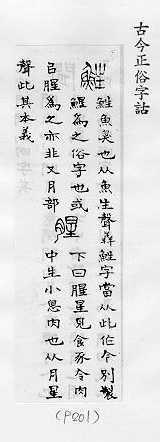 古今正俗字詁
鮏 鮏魚臭也从魚生聲羴鮏字當从此作今別製
鯹為之俗字也或
㠯腥為之亦非又月部
腥 下曰腥見食豕令肉
中生小息肉也从月星
聲此其本義
(P201)